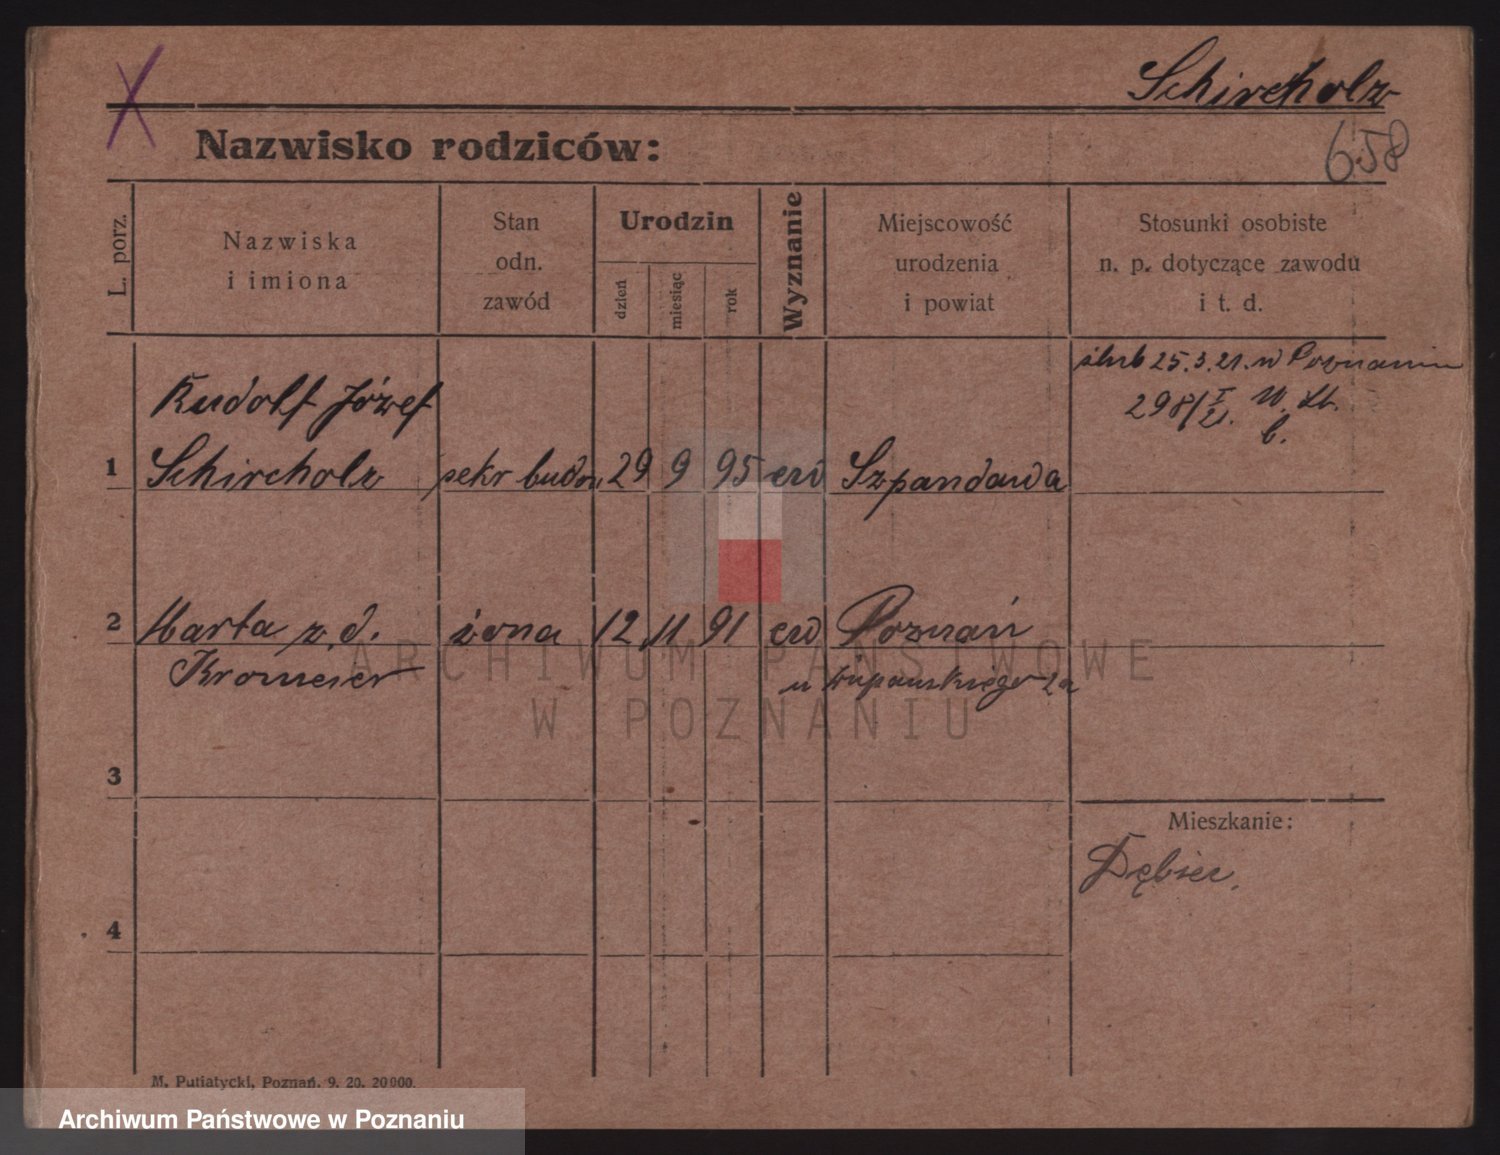 Schircholz
658
Nazwisko rodziców:
L. porz.
Nazwiska
i imiona
Stan
odn.
zawód
Urodzin
dzień
miesiąc
rok
Wyznanie
Miejscowość
urodzenia
i powiat
Stosunki osobiste
n. p. dotyczące zawodu
i t. d.
ślub 25.3.21. w Poznaniu
298/I 21.
Rudolf Józef
1 Schircholz sekr budow 29 9 95 ew Szpandawa
2 Marta z d. żona 12 11 91 ew Poznań
Kromeier
u 2a
3
Mieszkanie:
Dębiec.
4
M. Putiatycki, Poznań. 9. 20. 20000.
ARCHIWUM PAŃSTWOWE
W POZNANIU
Archiwum Państwowe w Poznaniu